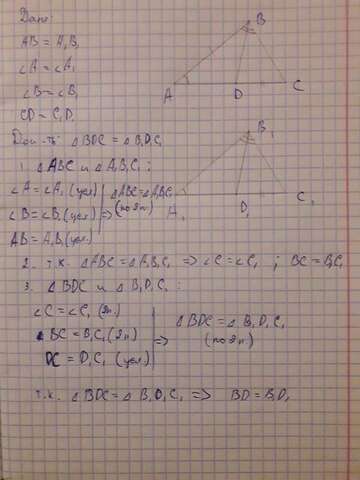 Дано:
AB = A₁B₁
∠A = ∠A₁
∠B = ∠B₁
CD = C₁D₁
B
A D C
Док-ть: △BDC = △B₁D₁C₁
B₁
A₁ D₁ C₁
1. △ABC и △A₁B₁C₁:
∠A = ∠A₁ (усл)
∠B = ∠B₁ (усл) => △ABC = △A₁B₁C₁
AB = A₁B₁ (усл)
2. т.к. △ABC = △A₁B₁C₁ => ∠C = ∠C₁ ; BC = B₁C₁
3. △BDC и △B₁D₁C₁ :
∠C = ∠C₁
BC = B₁C₁ => △BDC = △B₁D₁C₁
DC = D₁C₁ (усл)
т.к. △BDC = △B₁D₁C₁ => BD = B₁D₁